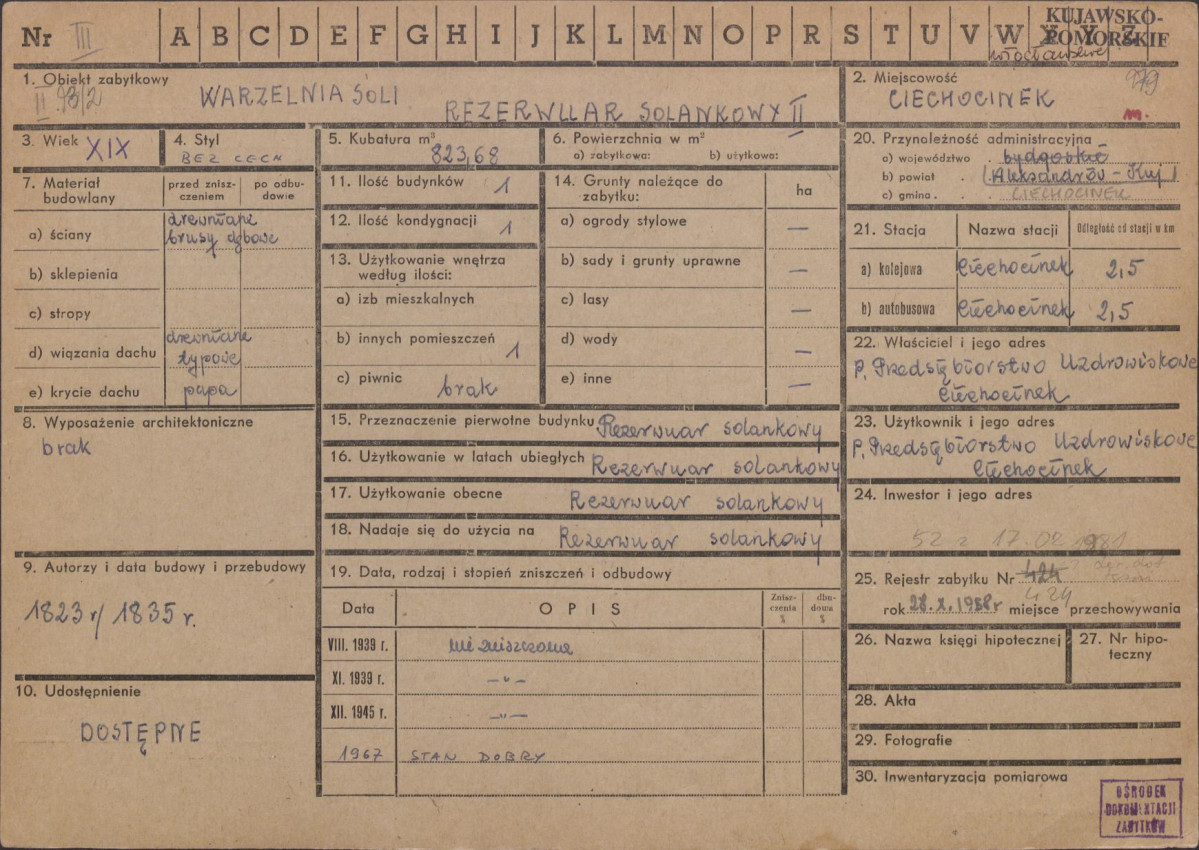 Nr III A B C D E F G H I J K L M N O P R S T U V W X Y Z
KUJAWSKO-
POMORSKIE
włocławskie
1. Obiekt zabytkowy
WARZELNIA SOLI
REZERWUAR SOLANKOWY II
2. Miejscowość
CIECHOCINEK
m.
3. Wiek XIX
4. Styl
BEZ CECH
5. Kubatura m³
823,68
6. Powierzchnia w m²
a) zabytkowa: b) użytkowa:
7. Materiał
budowlany
przed znisz-
czeniem
po odbu-
dowie
a) ściany
drewniane
brusy dębowe
b) sklepienia
c) stropy
d) wiązania dachu
drewniane
typowe
e) krycie dachu
papa
8. Wyposażenie architektoniczne
brak
9. Autorzy i data budowy i przebudowy
1823 r/ 1835 r.
10. Udostępnienie
DOSTĘPNE
11. Ilość budynków 1
12. Ilość kondygnacji 1
13. Użytkowanie wnętrza
według ilości:
a) izb mieszkalnych
b) innych pomieszczeń 1
c) piwnic brak
14. Grunty należące do
zabytku:
ha
a) ogrody stylowe —
b) sady i grunty uprawne —
c) lasy —
d) wody —
e) inne —
15. Przeznaczenie pierwotne budynku Rezerwuar solankowy
16. Użytkowanie w latach ubiegłych Rezerwuar solankowy
17. Użytkowanie obecne Rezerwuar solankowy
18. Nadaje się do użycia na Rezerwuar solankowy
19. Data, rodzaj i stopień zniszczeń i odbudowy
Data OPIS
Znisz-
czenia
%
dbu-
dowa
%
VIII. 1939 r. nie zniszczona
XI. 1939 r. —"—
XII. 1945 r. —"—
1967 STAN DOBRY
20. Przynależność administracyjna
a) województwo . bydgoskie
b) powiat . (Aleksandrów - Kuj)
c) gmina . . . CIECHOCINEK
21. Stacja
Nazwa stacji
Odległość od stacji w km
a) kolejowa Ciechocinek 2,5
b) autobusowa Ciechocinek 2,5
22. Właściciel i jego adres
P. Przedsębiorstwo Uzdrowiskowe
Ciechocinek
23. Użytkownik i jego adres
P. Przedsębiorstwo Uzdrowiskowe
Ciechocinek
24. Inwestor i jego adres
52 z 17.02 1981
25. Rejestr zabytku Nr 424
424
rok 28.X.1958r miejsce przechowywania
26. Nazwa księgi hipotecznej
27. Nr hipo-
teczny
28. Akta
29. Fotografie
30. Inwentaryzacja pomiarowa
OŚRODEK
DOKUMENTACJI
ZABYTKÓW